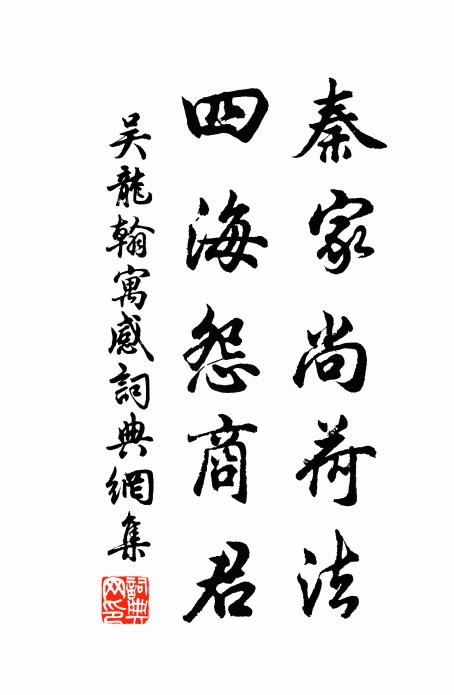 秦家尚荷法
四海怨商君
吴龍翰寓感詞典網集
詞典网印